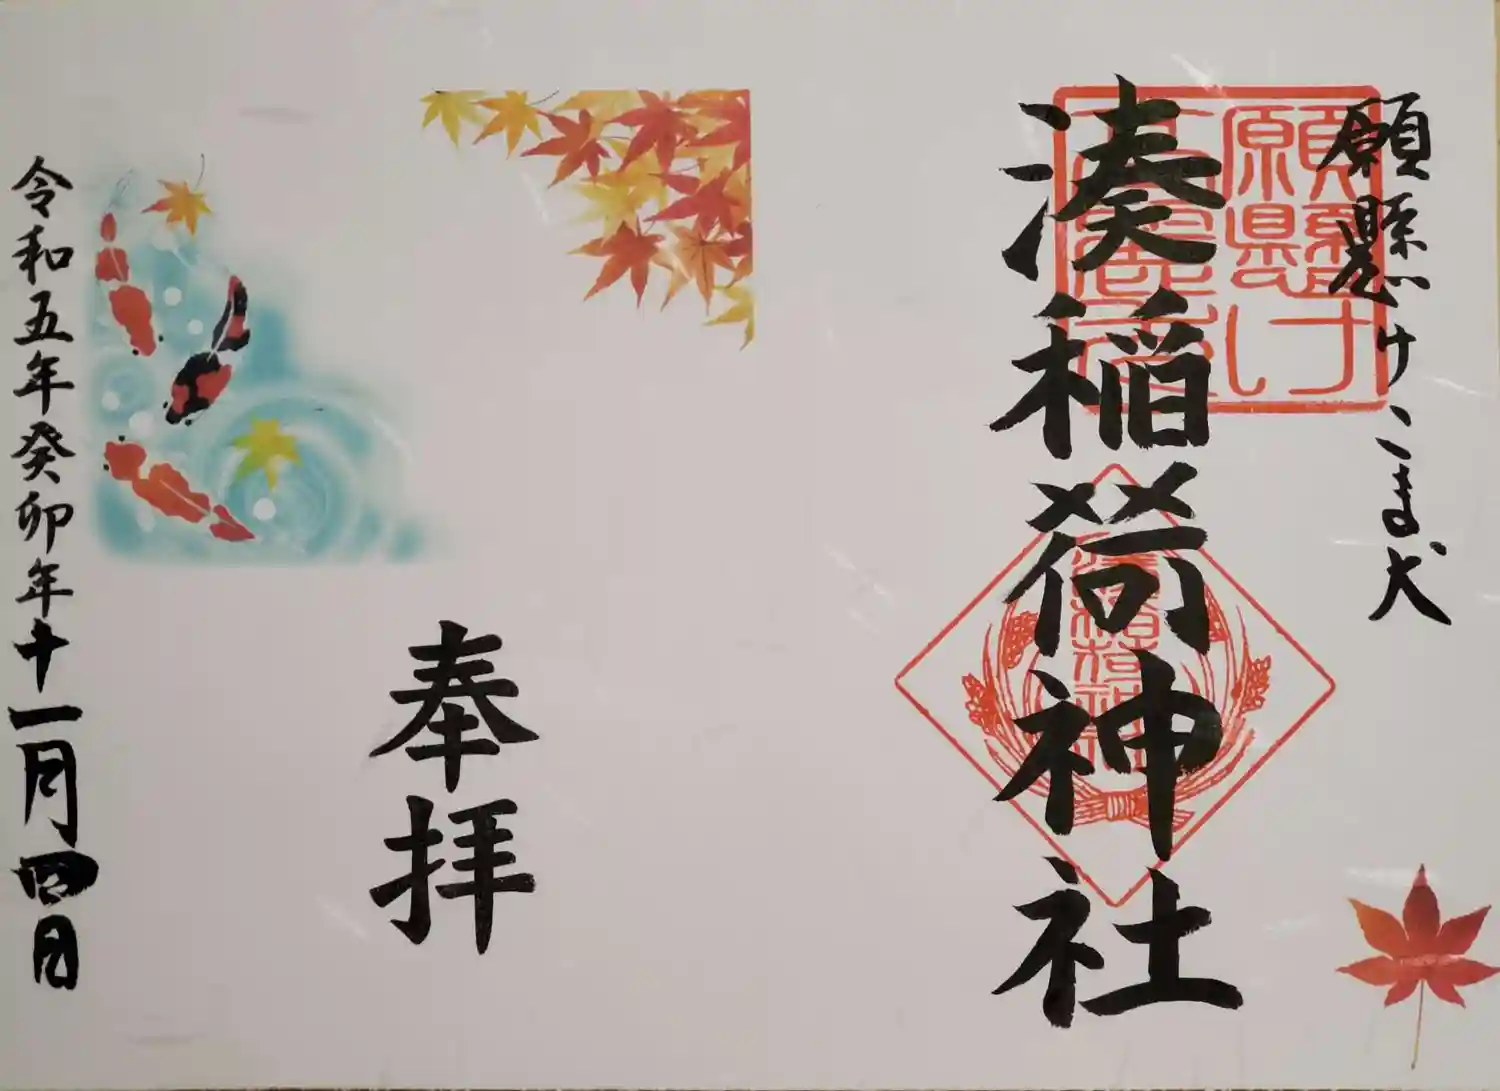 願懸けこま犬
湊稲荷神社
願懸け
奉拝
令和五年癸卯年十一月四日